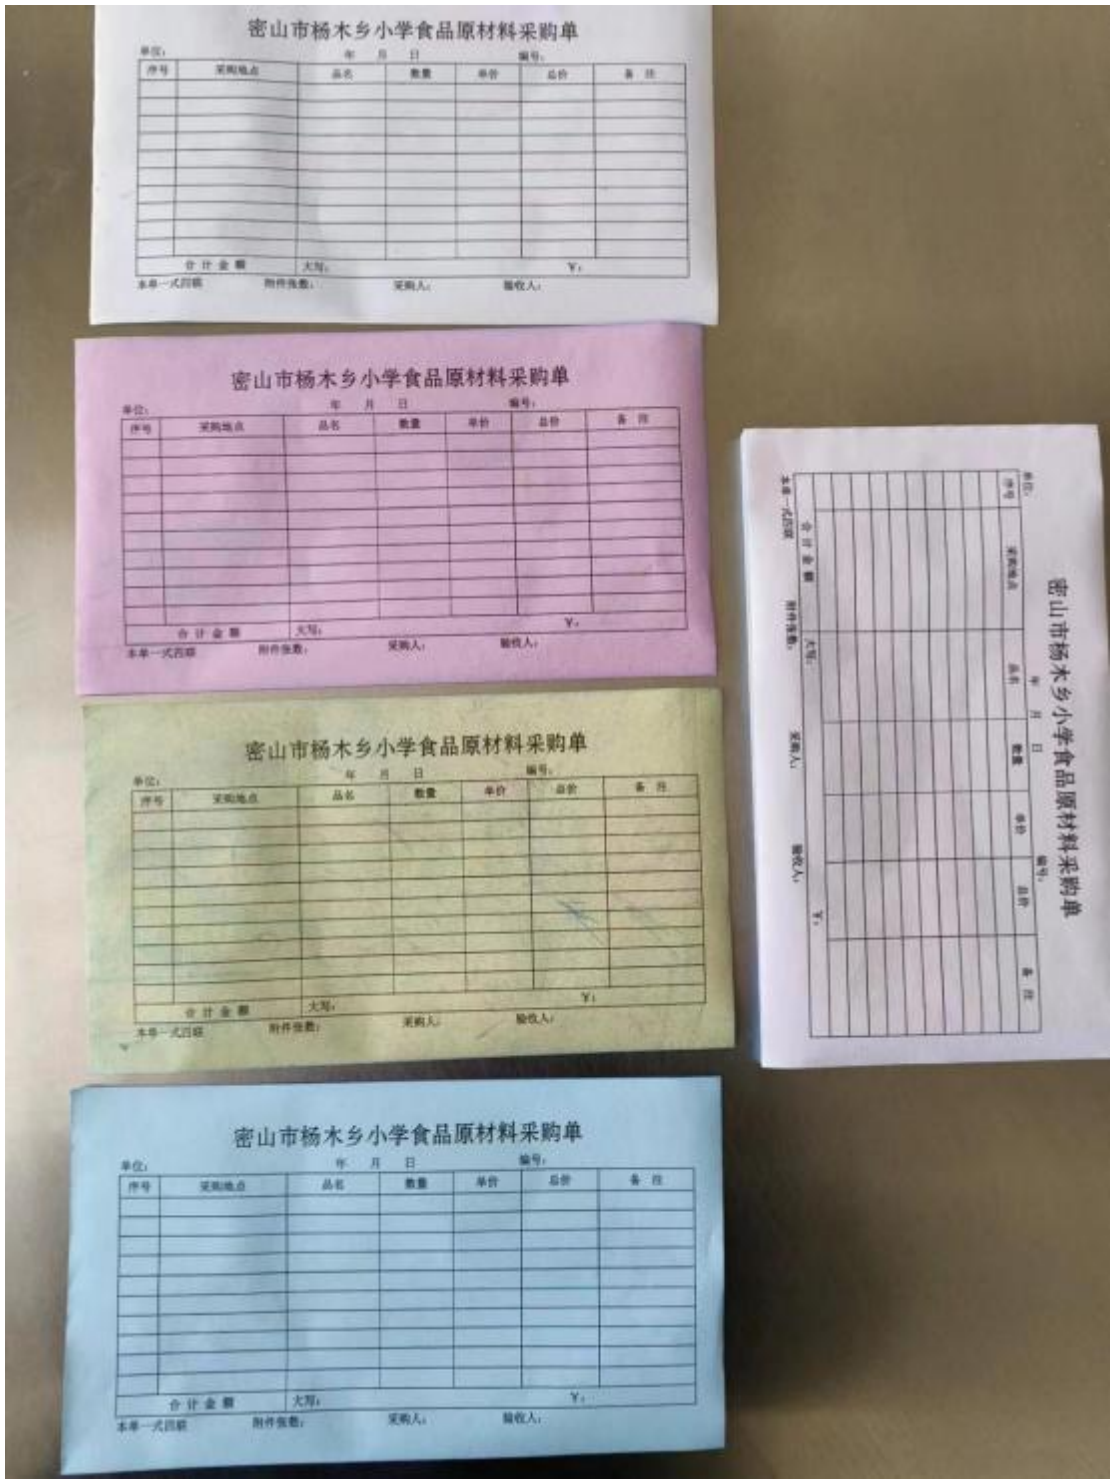 密山市杨木乡小学食品原材料采购单
单位： 年 月 日 编号：
序号 采购地点 品名 数量 单价 总价 备 注
合 计 金 额 大写： ￥：
本单一式四联 附件张数： 采购人： 验收人：
密山市杨木乡小学食品原材料采购单
单位： 年 月 日 编号：
序号 采购地点 品名 数量 单价 总价 备 注
合 计 金 额 大写： ￥：
本单一式四联 附件张数： 采购人： 验收人：
密山市杨木乡小学食品原材料采购单
单位： 年 月 日 编号：
序号 采购地点 品名 数量 单价 总价 备 注
合 计 金 额 大写： ￥：
本单一式四联 附件张数： 采购人： 验收人：
密山市杨木乡小学食品原材料采购单
单位： 年 月 日 编号：
序号 采购地点 品名 数量 单价 总价 备 注
合 计 金 额 大写： ￥：
本单一式四联 附件张数： 采购人： 验收人：
密山市杨木乡小学食品原材料采购单
单位： 年 月 日 编号：
序号 采购地点 品名 数量 单价 总价 备 注
合 计 金 额 大写： ￥：
本单一式四联 附件张数： 采购人： 验收人：